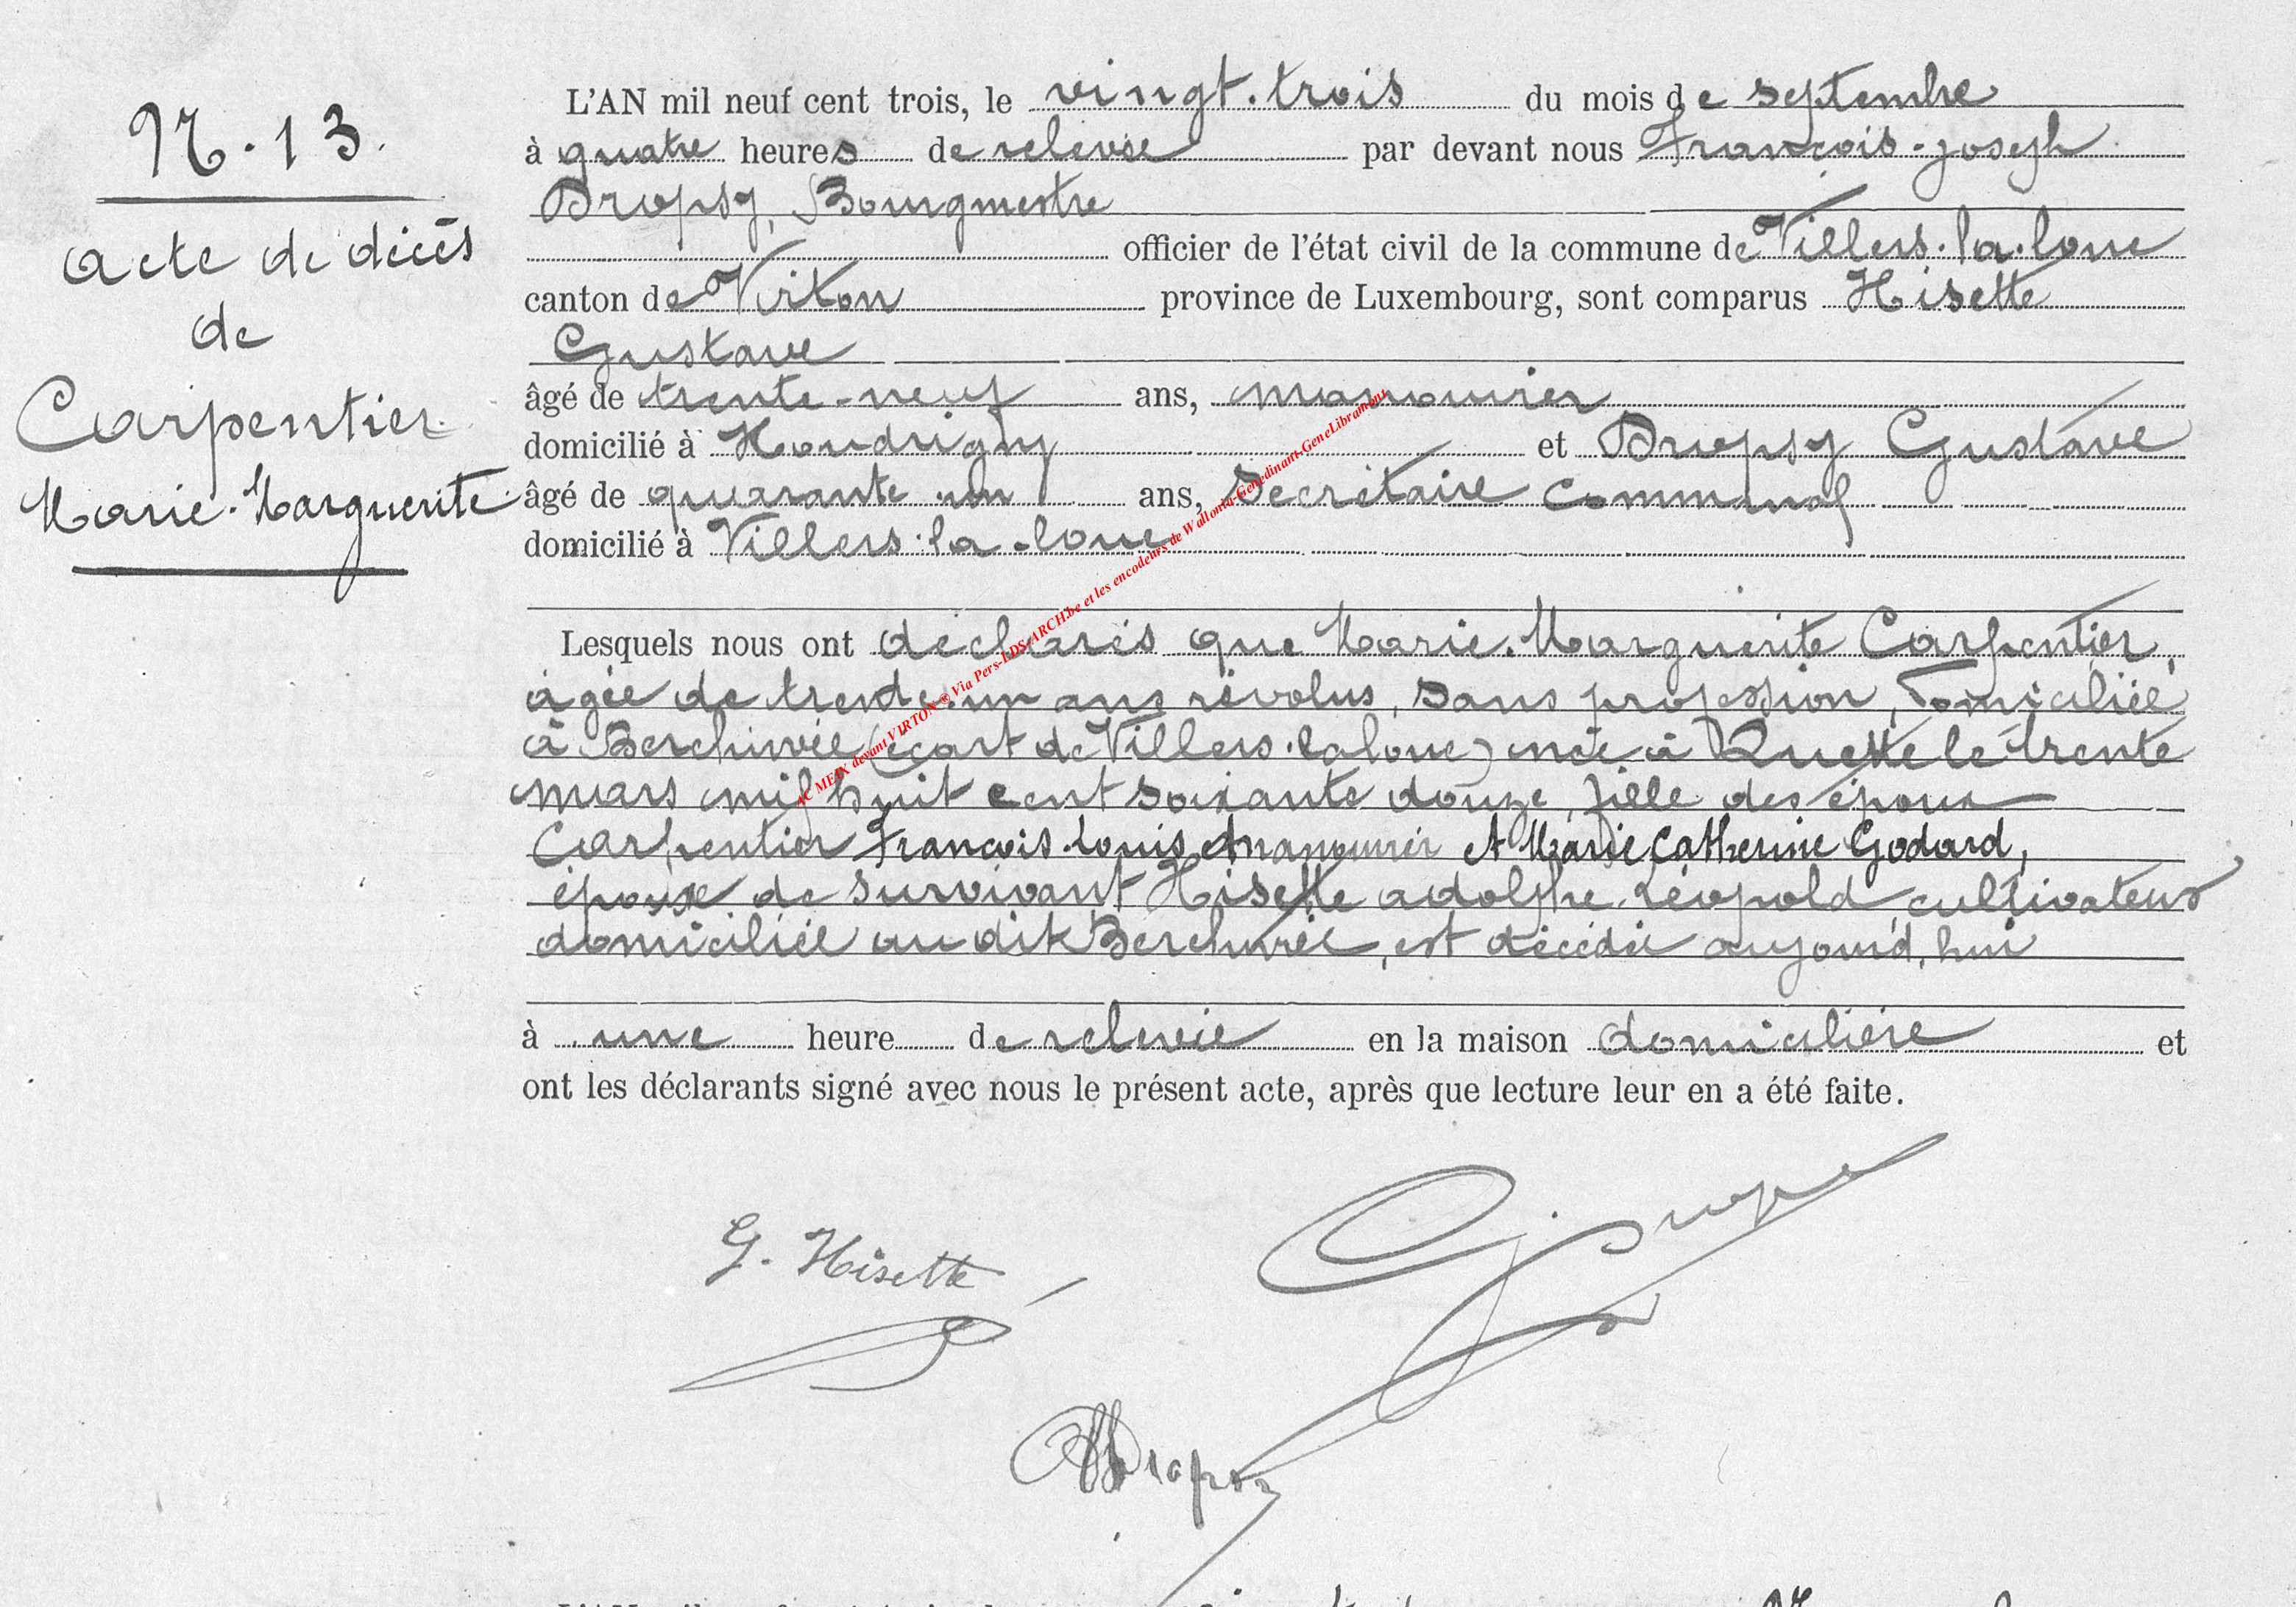 N. 13.
acte de décès
de
Carpentier
Marie-Marguerite
L'AN mil neuf cent trois, le vingt-trois du mois de septembre
à quatre heures de relevée par devant nous François-joseph
Dropsy, Bourgmestre
officier de l'état civil de la commune de Villers-la-loue
canton de Virton province de Luxembourg, sont comparus Hisette
Gustave
âgé de trente-neuf ans, manouvrier
domicilié à Houdrigny et Dropsy Gustave
âgé de quarante un ans, Secrétaire Communal
domicilié à Villers-la-loue
Lesquels nous ont déclarés que Marie-Marguerite Carpentier,
âgée de trente-un ans révolus, sans profession, domiciliée
à Berchiwée (écart de Villers-laloue) née à le trente
mars mil huit cent soixante douze, fille des époux
Carpentier François-Louis, manouvrier et Marie Catherine Godard,
épouse de survivant Hisette adolphe-Léopold cultivateur
domiciliée au dit Berchiwée, est décédée aujourd'hui
à une heure de relevée en la maison domicilière et
ont les déclarants signé avec nous le présent acte, après que lecture leur en a été faite.
G. Hisette
G. Dropsy
Dropsy
MEIX devant VIRTON ® Via Pers-LDS-ARCH.be et les encodeurs de Wallonia-Genedinant-GeneLibramont